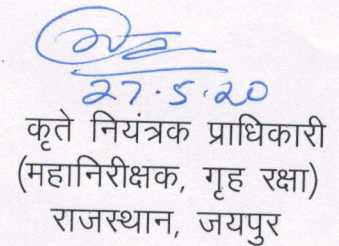 27.5.20
कृते नियंत्रक प्राधिकारी
(महानिरीक्षक, गृह रक्षा)
राजस्थान, जयपुर